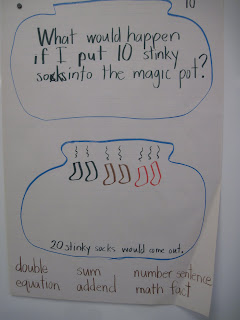 10
What would happen
if I put 10 stinky
socks into the magic pot?
20 stinky socks would come out.
double sum number sentence
equation addend math fact